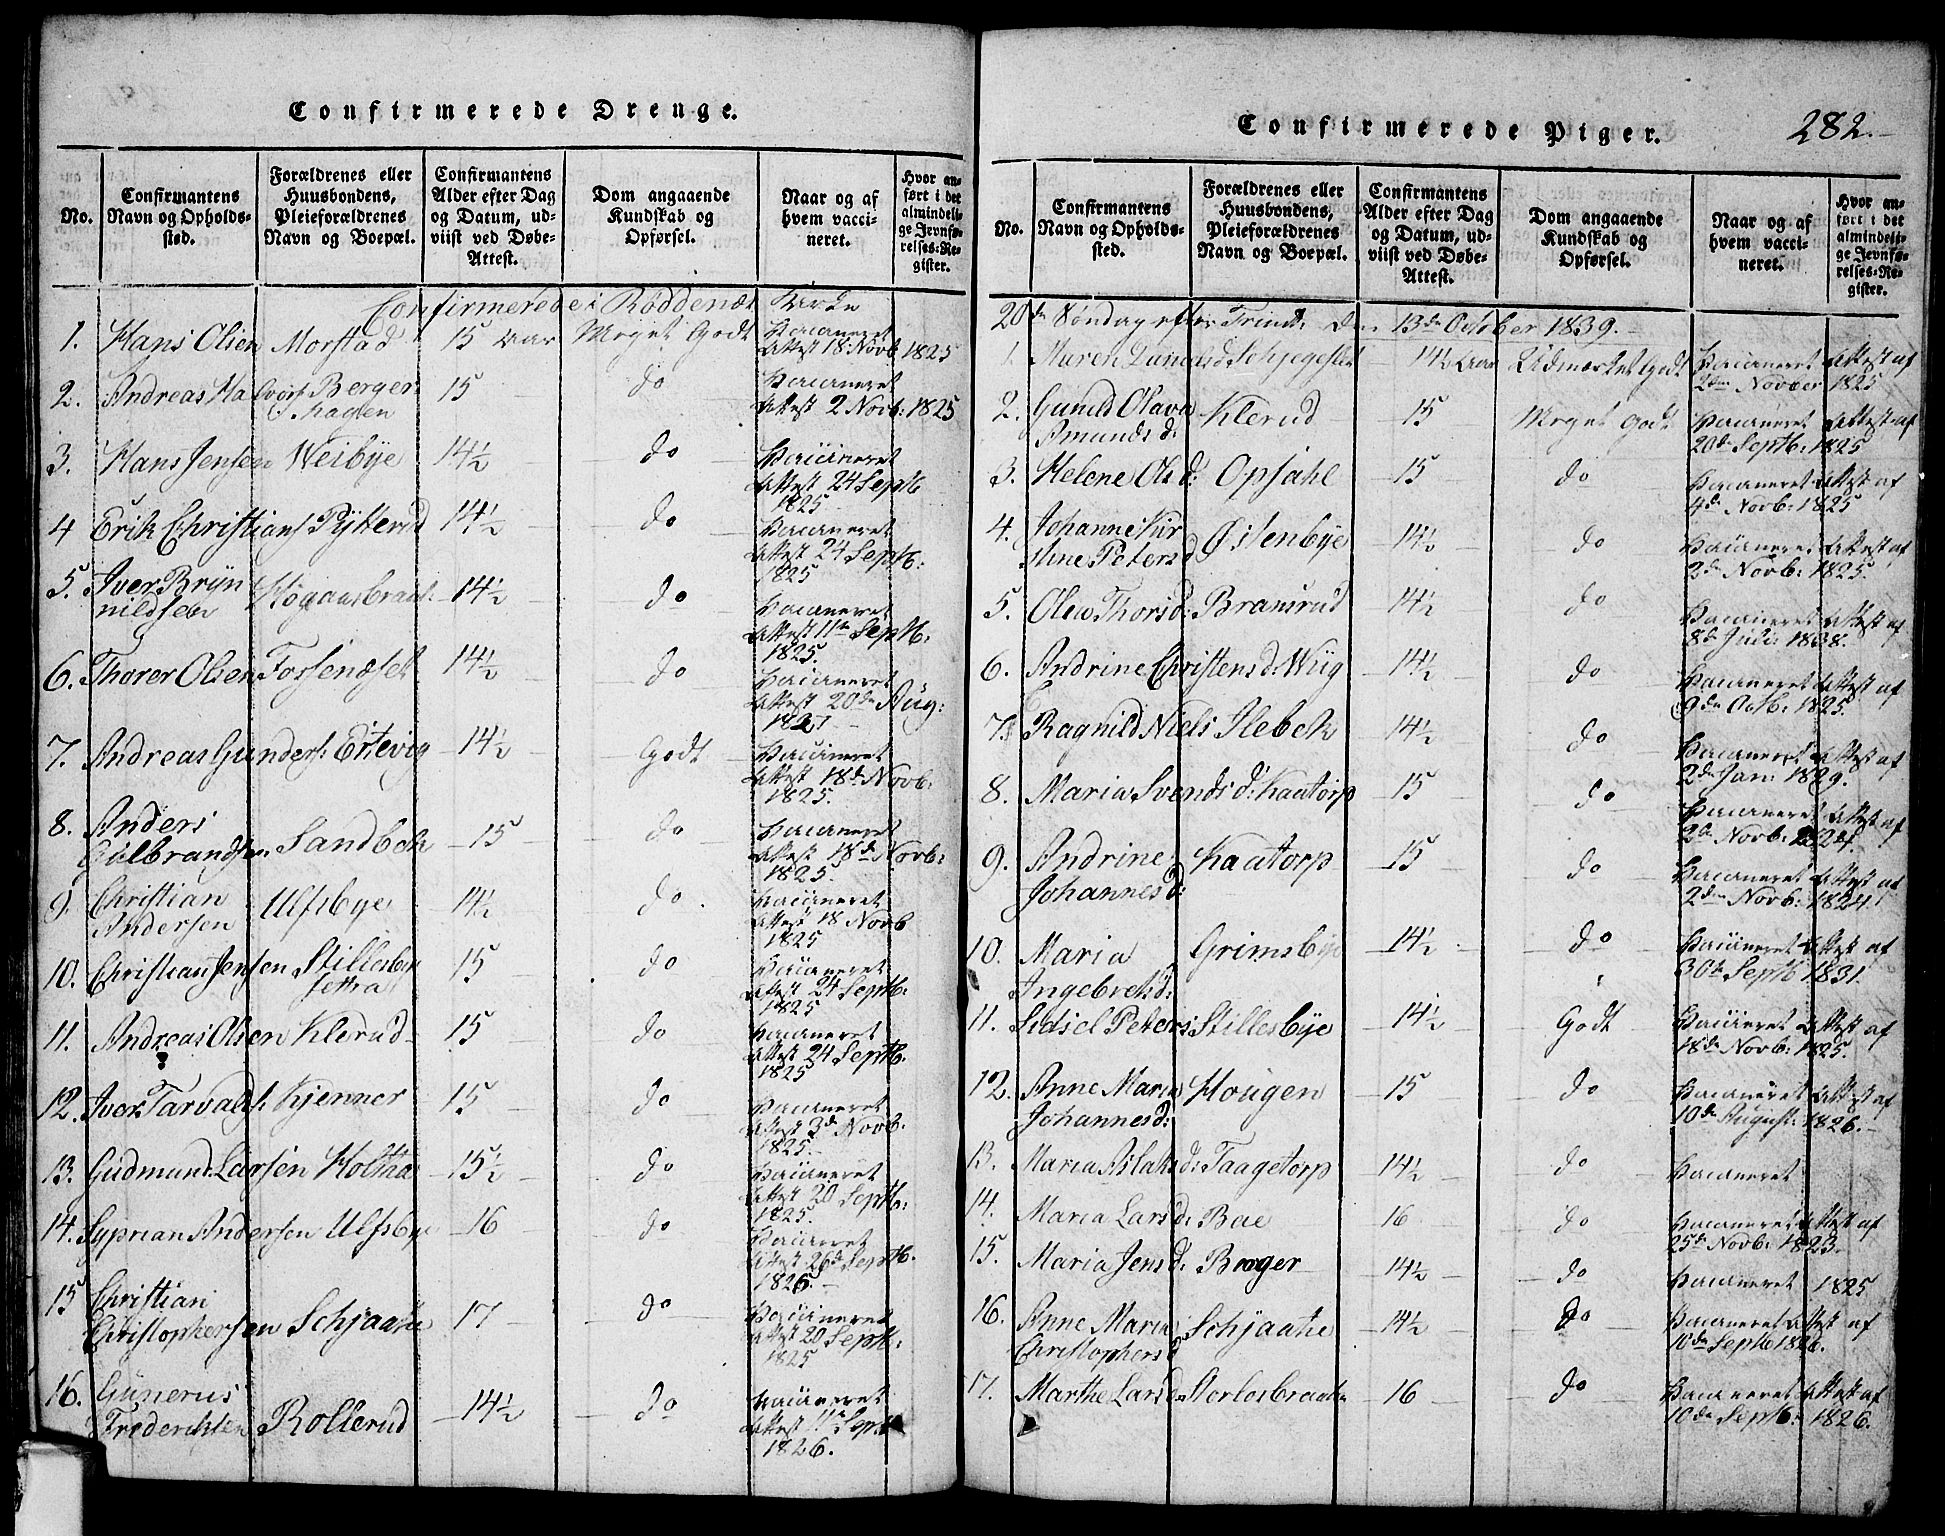 Confirmerede Drenge.
No.
Confirmantens Navn og Opholds-sted.
Forældrenes eller Huusbondens, Pleieforældrenes Navn og Boepæl.
Confirmantens Alder efter Dag og Datum, ud-viist ved Døbe-Attest.
Dom angaaende Kundskab og Opførsel.
Naar og af hvem vacci-neret.
Hvor an-ført i det almindeli-ge Jevnfø-relses-Re-gister.
Confirmerede i Røddenæs Kirke
1. Hans Olsen Morstad 15 Aar Meget Godt Vaccineret Attest 18 Novb. 1825
2. Andreas Halvors. Berger Skagen 15 do Vaccineret Attest 2 Novb: 1825
3. Hans Jensen Weibye 14½ do Vaccineret Attest 24 Septb 1825
4 Erik Christians Pytterud 14½ do Vaccineret Attest 24 Septb: 1825
5. Iver Brÿnnildsen 14½ do Vaccineret Attest 11te Septb: 1825.
6. Thorer Olsen Fossenæset 14½ do Vaccineret Attest 20de Aug: 1827
7. Andreas Gunders: Ertevig 14½ Godt Vaccineret Attest 18de Novb: 1825.
8. Anders Gulbrandsen Sandbek 15 do Vaccineret Attest 18de Novb: 1825.
9. Christian Andersen Ulfsbye 14½ do Vaccineret Attest 18 Novb 1825
10. Christian Jensen Stillesbye 15 do Vaccineret Attest 24 Septb: 1825
11. Andreas Olsen Klerud 15 do Vaccineret Attest 24 Septb: 1825
12. Iver Tarvalds: Kjenner 15 do Vaccineret Attest 3de Novb. 1825.
13. Gudmund Larsen Holtha 15½ do Vaccineret Attest 20 Septb: 1825.
14. Syprian Andersen Ulfsbye 16 do Vaccineret Attest 26de Septb. 1826.
15 Christian Christophersen Schjaatie 17 do Vaccineret Attest 20 Septb: 1825
16. Gunerus Frederichsen Rollerud 14½ do Vaccineret Attest 11te Sept 1826.
Confirmerede Piger.
282.
No.
Confirmantens Navn og Opholds-sted.
Forældrenes eller Huusbondens, Pleieforældrenes Navn og Boepæl.
Confirmantens Alder efter Dag og Datum, ud-viist ved Døbe-Attest.
Dom angaaende Kundskab og Opførsel.
Naar og af hvem vacci-neret.
Hvor an-ført i det almindeli-ge Jevnfø-relses-Re-gister.
20de Søndag efter Trinit: den 13de October 1839.
1. Karen Daniels d: 14½ Aar Udmærket Godt Vaccineret Attest af 2den Novber 1825
2. Gunild Olava Amunds d: Klerud 15 Meget Godt Vaccineret Attest af 20de Septb: 1825
3. Helene Ols d: Opsahl 15 do Vaccineret Attest af 4de Novb: 1825
4. Johanne Kirstine Peters d Østenbye 14½ do Vaccineret Attest af 2de Novb: 1825.
5. Olea Thors d: Bransrud 14½ do Vaccineret Attest af 8de Juli: 1838.
6. Andrine Christens d: Wiig 14½ do Vaccineret Attest af 9de Octb: 1825.
7. Ragnild Niels Ilebek 14½ do Vaccineret Attest af 2de Jan: 1829.
8. Maria Svends d: Kaatorp 15 do Vaccineret Attest af 2de Novb: 1824.
9. Andrine Johannes d: Kaatorp 15 do Vaccineret Attest af 2den Novb: 1824.
10. Maria Ingebrets d: Grimsbye 14½ do Vaccineret Attest af 30te Septb 1831.
11. Sidsel Peters: Stillesbye 14½ Godt Vaccineret Attest af 18de Novb: 1825.
12. Anne Maria Johannes d: Hougen 15 do Vaccineret Attest af 10de August: 1826.
13. Maria Aslaks d: Taagetorp 14½ do Vaccineret
14. Maria Lars d: Bae 16 do Vaccineret Attest af 25de Novb: 1823.
15. Maria Jens d: Berger 14½ do Vaccineret 1825
16. Anne Maria Christophers d Schjaatie 14½ do Vaccineret Attest af 10de Septb 1826.
17. Marthe Lars d: 16 do Vaccineret Attest af 10de Septb: 1826.